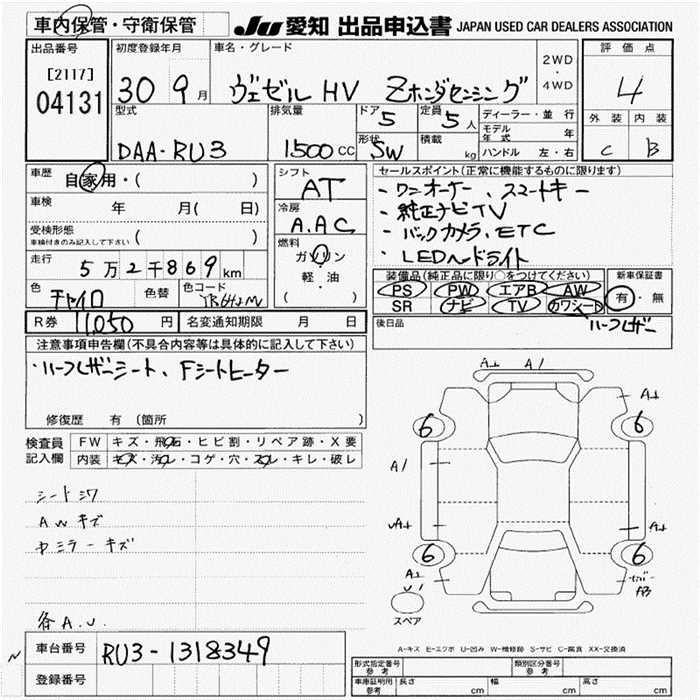 車内保管・守衛保管
JU 愛知 出品申込書 JAPAN USED CAR DEALERS ASSOCIATION
出品番号
[2117]
04131
初度登録年月
30 9月
車名・グレード
ヴェゼル HV Zホンダセンシング
2WD
・
4WD
評価点
4
外装 内装
C B
型式
DAA-RU3
排気量
1500cc
ドア
5
定員
5人
形状
SW
積載
kg
ディーラー・並行
モデル年式 年
ハンドル 左・右
車歴
自家用・( )
車検 年 月( 日)
受検形態
車検付きのみ記入して下さい ( )
走行 5万2千869km
色
チャイロ
色替
色コード
R券 11,050円
名変通知期限 月 日
シフト
AT
冷房
A.AC
燃料
ガソリン
軽・油
・
( )
セールスポイント(正常に機能するものに限ります)
・ワンオーナー、スマートキー
・純正ナビTV
・バックカメラ、ETC
・LEDヘッドライト
装備品(純正品に限り○をつけてください)
PS PW エアB AW
SR ナビ TV カワシート
新車保証書
有・無
後日品
ハーフレザー
注意事項申告欄(不具合内容等は具体的に記入して下さい)
・ハーフレザーシート、Fシートヒーター
修復歴 有 (箇所 )
検査員記入欄
FW キズ・飛石・ヒビ割・リペア跡・X要
内装 キズ・汚れ・コゲ・穴・スレ・キレ・破レ
シートシワ
AWキズ
各A.U.
A1
6 6
A1
6 6
U1
A3
スペア
A-キズ E-エクボ U-凹み W-補修跡 S-サビ C-腐食 XX-交換済
車台番号 RU3-1318349
登録番号
形式指定番号
参考
類別区分番号
参考
車庫証明用
参考
長さ cm 幅 cm 高さ cm